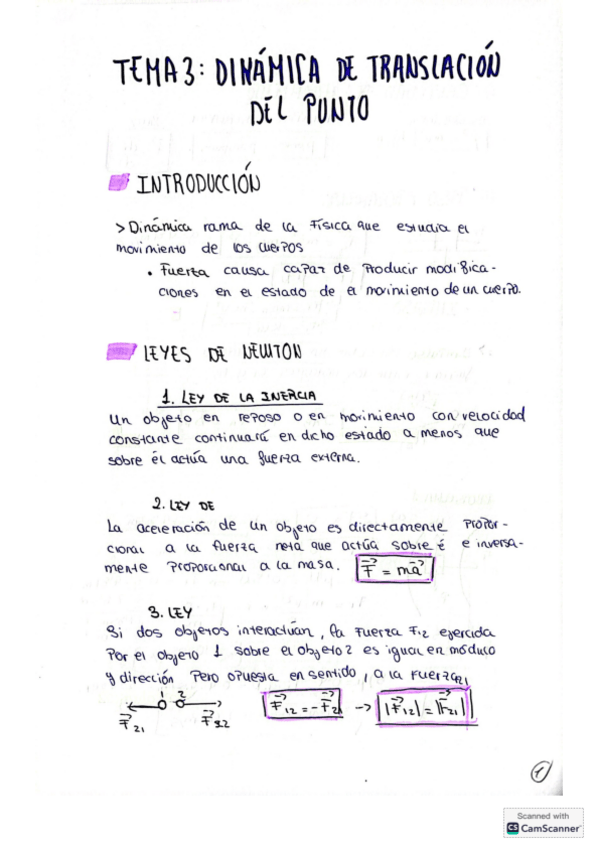 TEMA 3: DINÁMICA DE TRANSLACIÓN
DEL PUNTO
INTRODUCCIÓN
> Dinámica rama de la Física que estudia el
movimiento de los cuerpos
• Fuerza causa capaz de producir modifica-
ciones en el estado de el movimiento de un cuerpo.
LEYES DE NEWTON
1. LEY DE LA INERCIA
Un objeto en reposo o en movimiento con velocidad
constante continuará en dicho estado a menos que
sobre él actúa una fuerza externa.
2. LEY DE
La aceleración de un objeto es directamente propor-
cional a la fuerza neta que actúa sobre é e inversa-
mente proporcional a la masa. F⃗ = ma⃗
3. LEY
Si dos objetos interactúan, la fuerza F12 ejercida
por el objeto 1 sobre el objeto 2 es igual en módulo
y dirección pero opuesta en sentido, a la fuerza21
1 2
F⃗21 F⃗12 F⃗12 = -F⃗21 -> |F⃗12| = |F⃗21|
1
Scanned with
CS CamScanner